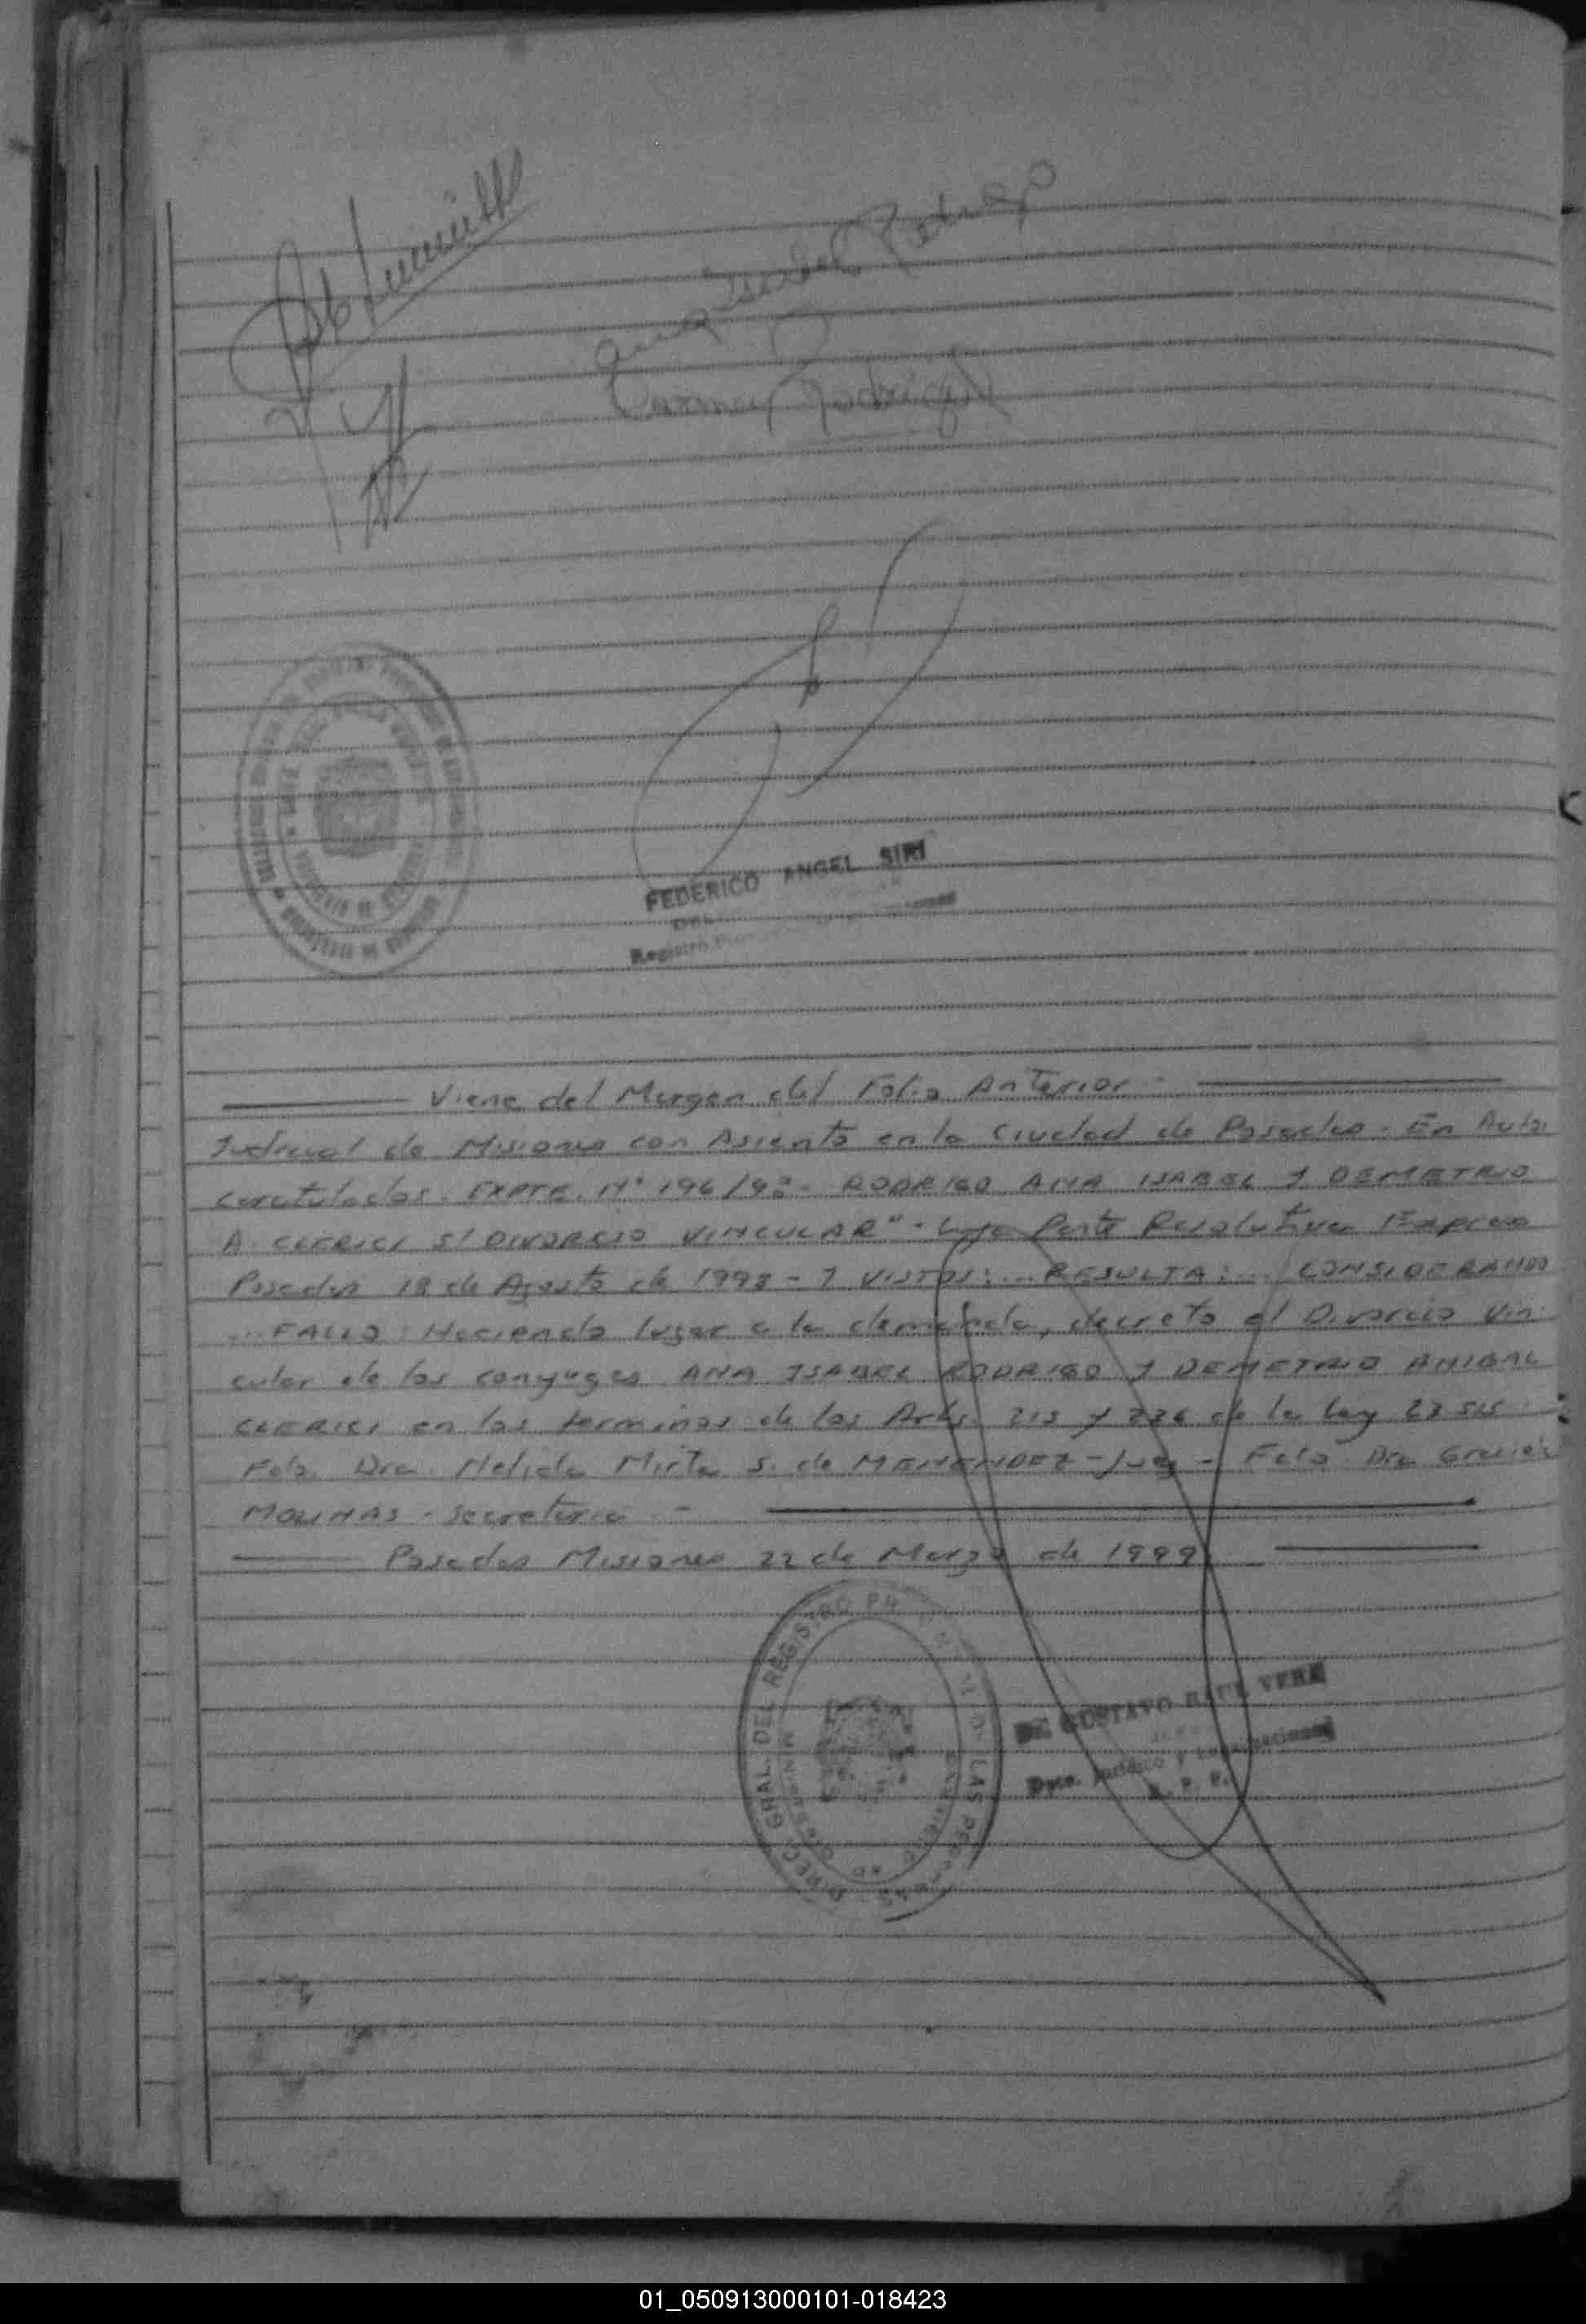 Ana Isabel Rodrigo
Carmen Rodrigo
FEDERICO ANGEL SIRI
DEL
Registro
Viene del Margen del Folio Anterior -
Judicial de Misiones con Asiento en la Ciudad de Posadas - En Autos
Caratulados: EXPTE. Nº 196/98 - RODRIGO ANA ISABEL Y DEMETRIO
A. CLERICI S/ DIVORCIO VINCULAR" - Cuya Parte Resolutiva Expresa
Posadas 18 de Agosto de 1998 - Y VISTOS: ... RESULTA: ... CONSIDERANDO
... FALLO: Haciendo lugar a la demanda, decreto el Divorcio Vin-
cular de los conyuges ANA ISABEL RODRIGO Y DEMETRIO ANIBAL
CLERICI en los terminos de los Arts. 215 y 236 de la Ley 23515
Fdo. Dra. Nelida Mirta S. de MENENDEZ - Juez - Fdo. Dra. Graciela
MOLINAS - Secretaria -
Posadas Misiones 22 de Marzo de 1999
DIREC. GRAL. DEL REGISTRO DE LAS PERSONAS
GUSTAVO RAUL VERA
Dpto. Jurídico y
R. P. P.
01_050913000101-018423